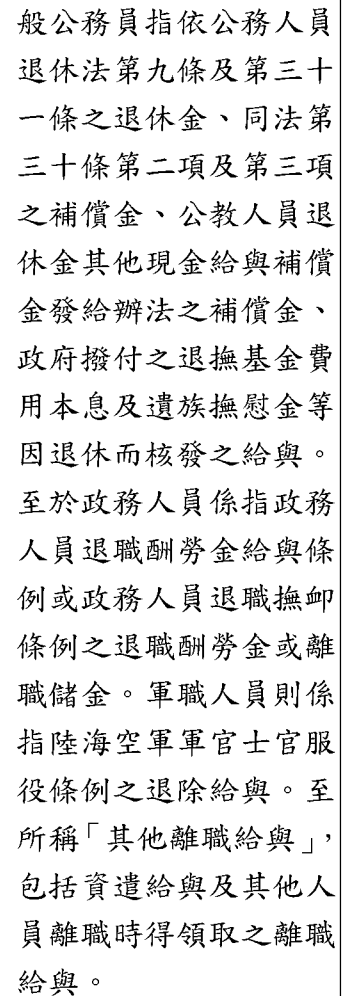 般公務員指依公務人員
退休法第九條及第三十
一條之退休金、同法第
三十條第二項及第三項
之補償金、公教人員退
休金其他現金給與補償
金發給辦法之補償金、
政府撥付之退撫基金費
用本息及遺族撫慰金等
因退休而核發之給與。
至於政務人員係指政務
人員退職酬勞金給與條
例或政務人員退職撫卹
條例之退職酬勞金或離
職儲金。軍職人員則係
指陸海空軍軍官士官服
役條例之退除給與。至
所稱「其他離職給與」，
包括資遣給與及其他人
員離職時得領取之離職
給與。